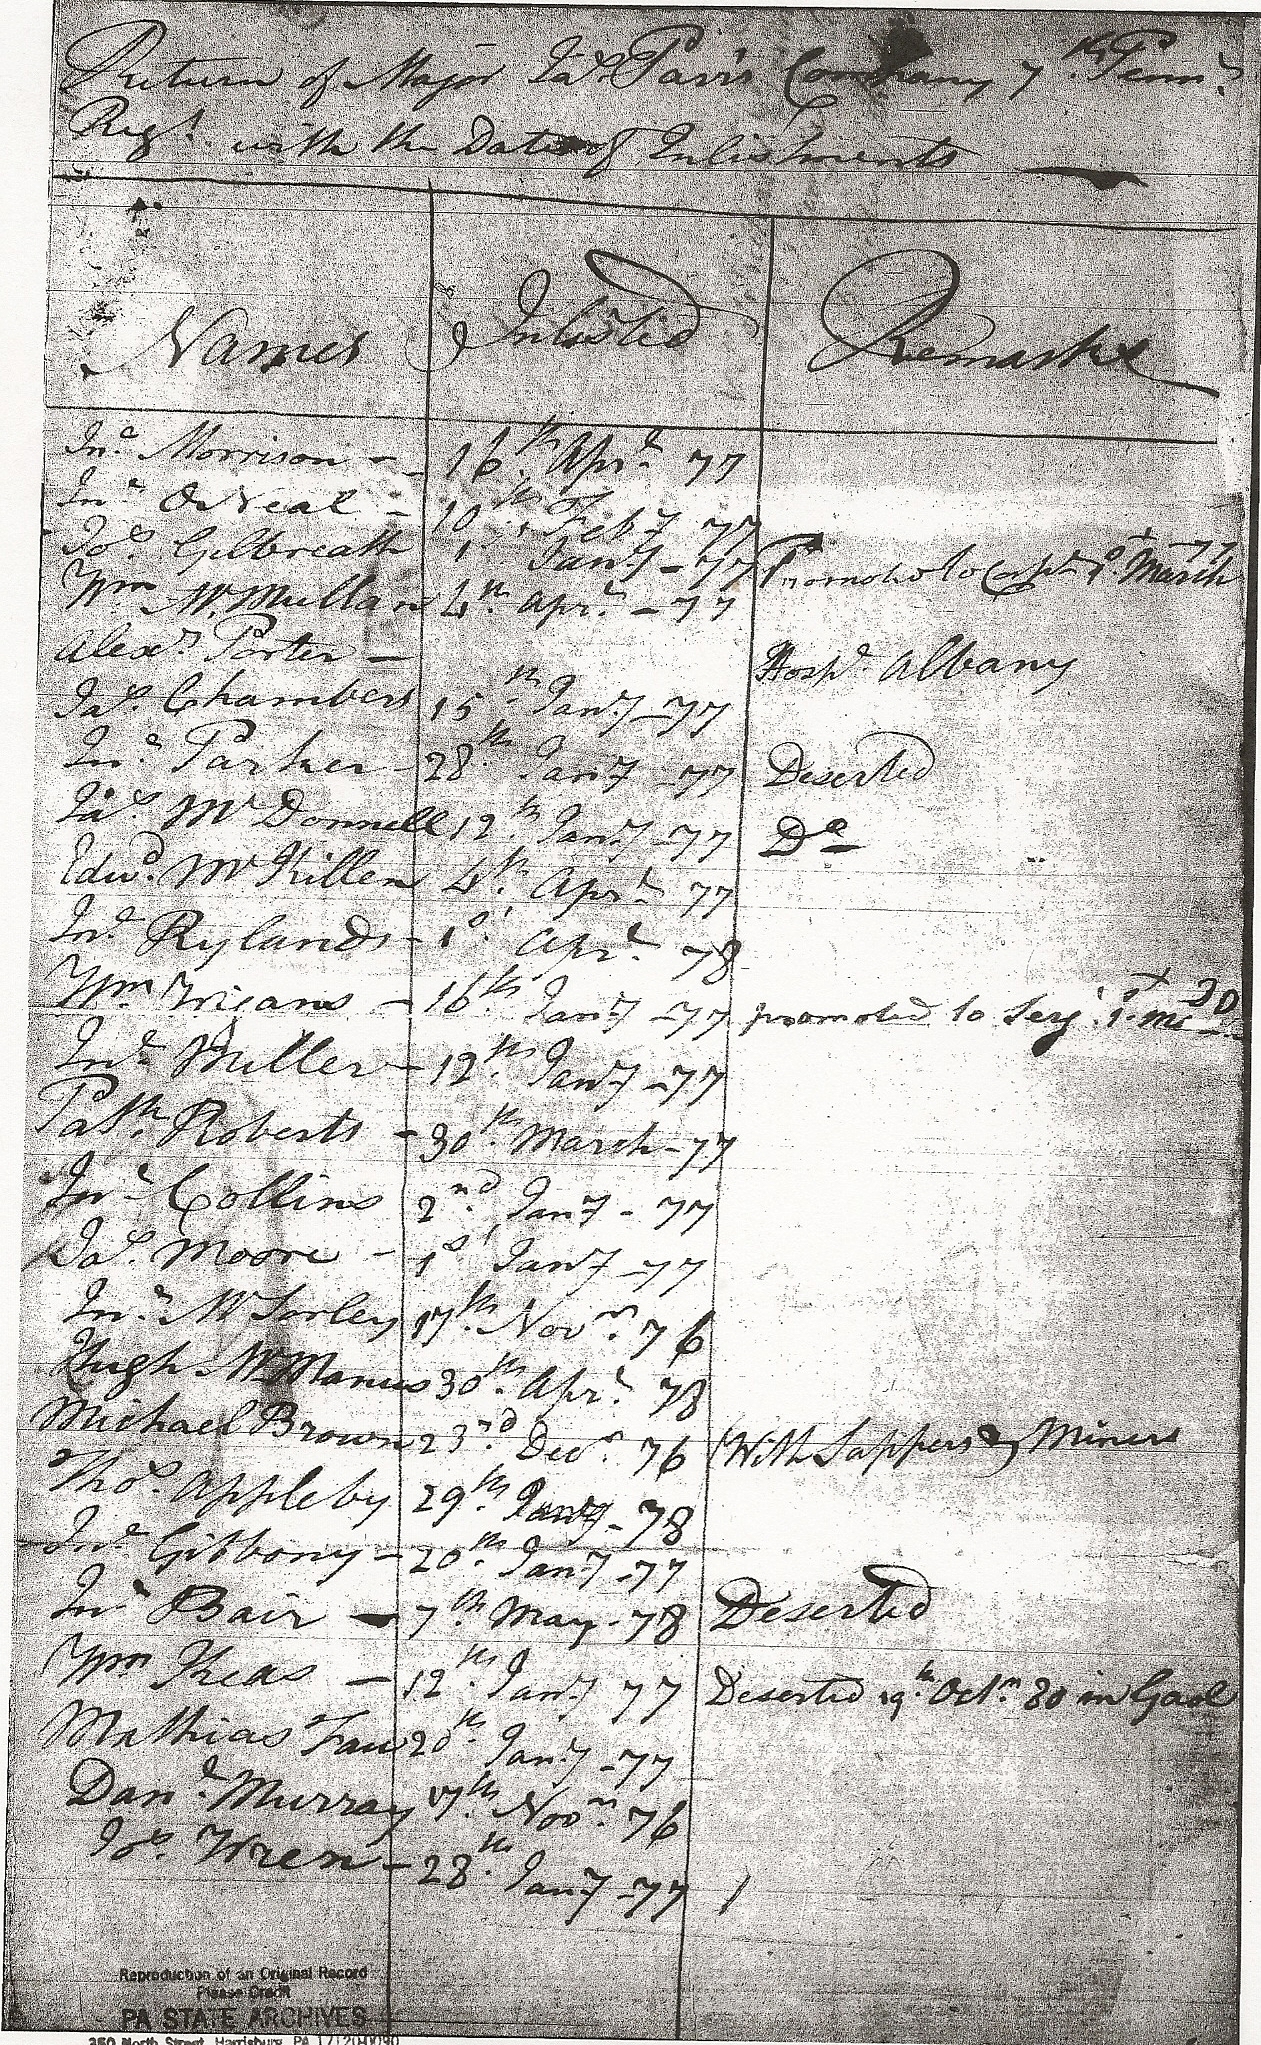 Return of Major Jas. Parr's Company 7th Penna.
Regt. with the Date of Inlistments
Names Inlisted Remarks
Jno. Morrison - 16th. Aprl. 77
Jno. O Neal - 10th. Feby 77
Jos. Gilbreath 1st Jany - 77 Promoted to Corpl. 1st March 77
Wm. McMullan 4th. Aprl. - 77
Alexr. Porter - Hospl. Albany
Jas. Chambers 15th Jany - 77
Jno. Parker - 28th. Jany - 77 Deserted
Jas. McDonnell 12th. Jany - 77 Do
Edwd. McKillen 4th. Aprl. 77
Jno. Rylands - 1st. Aprl. 78
Wm - 16th Jany - 77 promoted to Serj.
Jno. Miller - 12th. Jany - 77
Patk. Roberts - 30th. March - 77
Jno. Collins 2nd Jany - 77
Jas. Moore - 1st Jany - 77
Jno. McSorley 17th. Novr. 76
Hugh McManus 30th. Aprl. 78
Michael Brown 23rd Decr. 76 With Sappers & Miners
Thos. Appleby 29th. Jany - 78
Jno. Gibbony - 20th. Jany - 77
Jno. Bair - 7th. May - 78 Deserted
Wm Keas - 12th. Jany 77 Deserted 19th Octr. 80 in Gaol
Mathias Faw 20th. Jany - 77
Danl. Murray 17th. Novr. 76
Jos. Wren - 28th. Jany - 77
Reproduction of an Original Record
Please Credit
PA STATE ARCHIVES
350 North Street, Harrisburg, PA 17120-0090